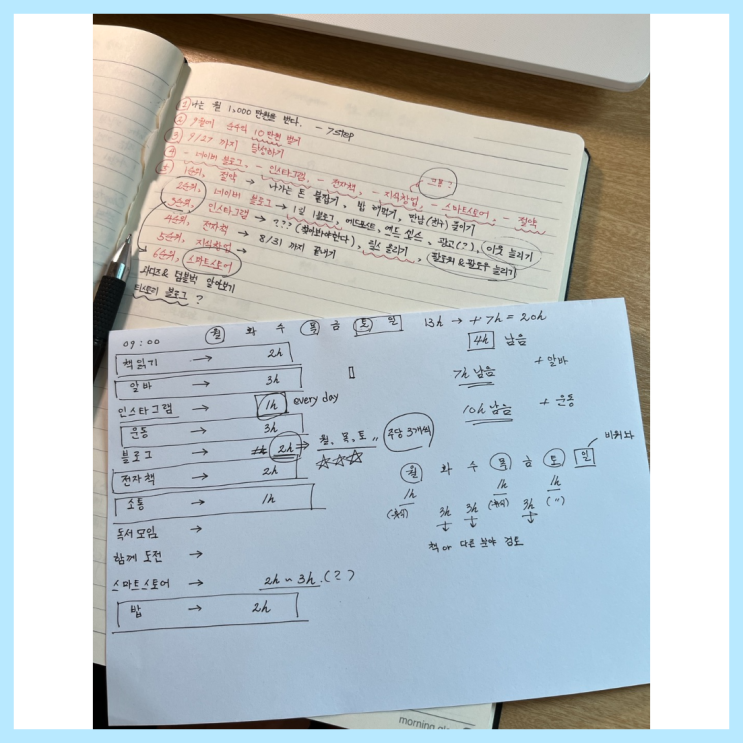 ① 나는 월 1,000만원을 번다. - 7 STEP
② 9월에 순수익 10만원 벌기
③ 9/27 까지 달성하기
④ - 네이버 블로그, - 인스타그램, - 전자책, - 지식창업, - 스마트스토어, - 절약
크몽?
⑤ 1순위, 절약 → 나가는 돈 붙잡기, 밥 해먹기, 만남(친구) 줄이기
2순위, 네이버 블로그 → 1일 1블로그, 애드포스트, 애드 센스, 광고(?), 이웃 늘리기
3순위, 인스타그램 → ??? (찾아봐야한다), 릴스 올리기, 팔로워 & 팔로우 늘리기
4순위, 전자책 → 8/31 까지 끝내기
5순위, 지식창업
6순위, 스마트스토어
와디즈 & 텀블벅 알아보기
티스토리 블로그 ?
09:00
월 화 수 목 금 토 일
13h → +7h = 20h
책읽기 → 2h
4h 남음
알바 → 3h
7h 남음 + 알바
인스타그램 → 1h every day
10h 남음 + 운동
운동 → 3h
블로그 → 2h ⇒ 월, 목, 토 주당 3개씩
☆☆☆
전자책 → 2h
소통 → 1h
독서모임 →
함께 도전 →
스마트스토어 → 2h ~ 3h.(?)
밥 → 2h
비워놔
월 화 수 목 금 토 일
1h 1h 1h
3h 3h 3h
(〃)
책 or 다른 분야 검토
morning